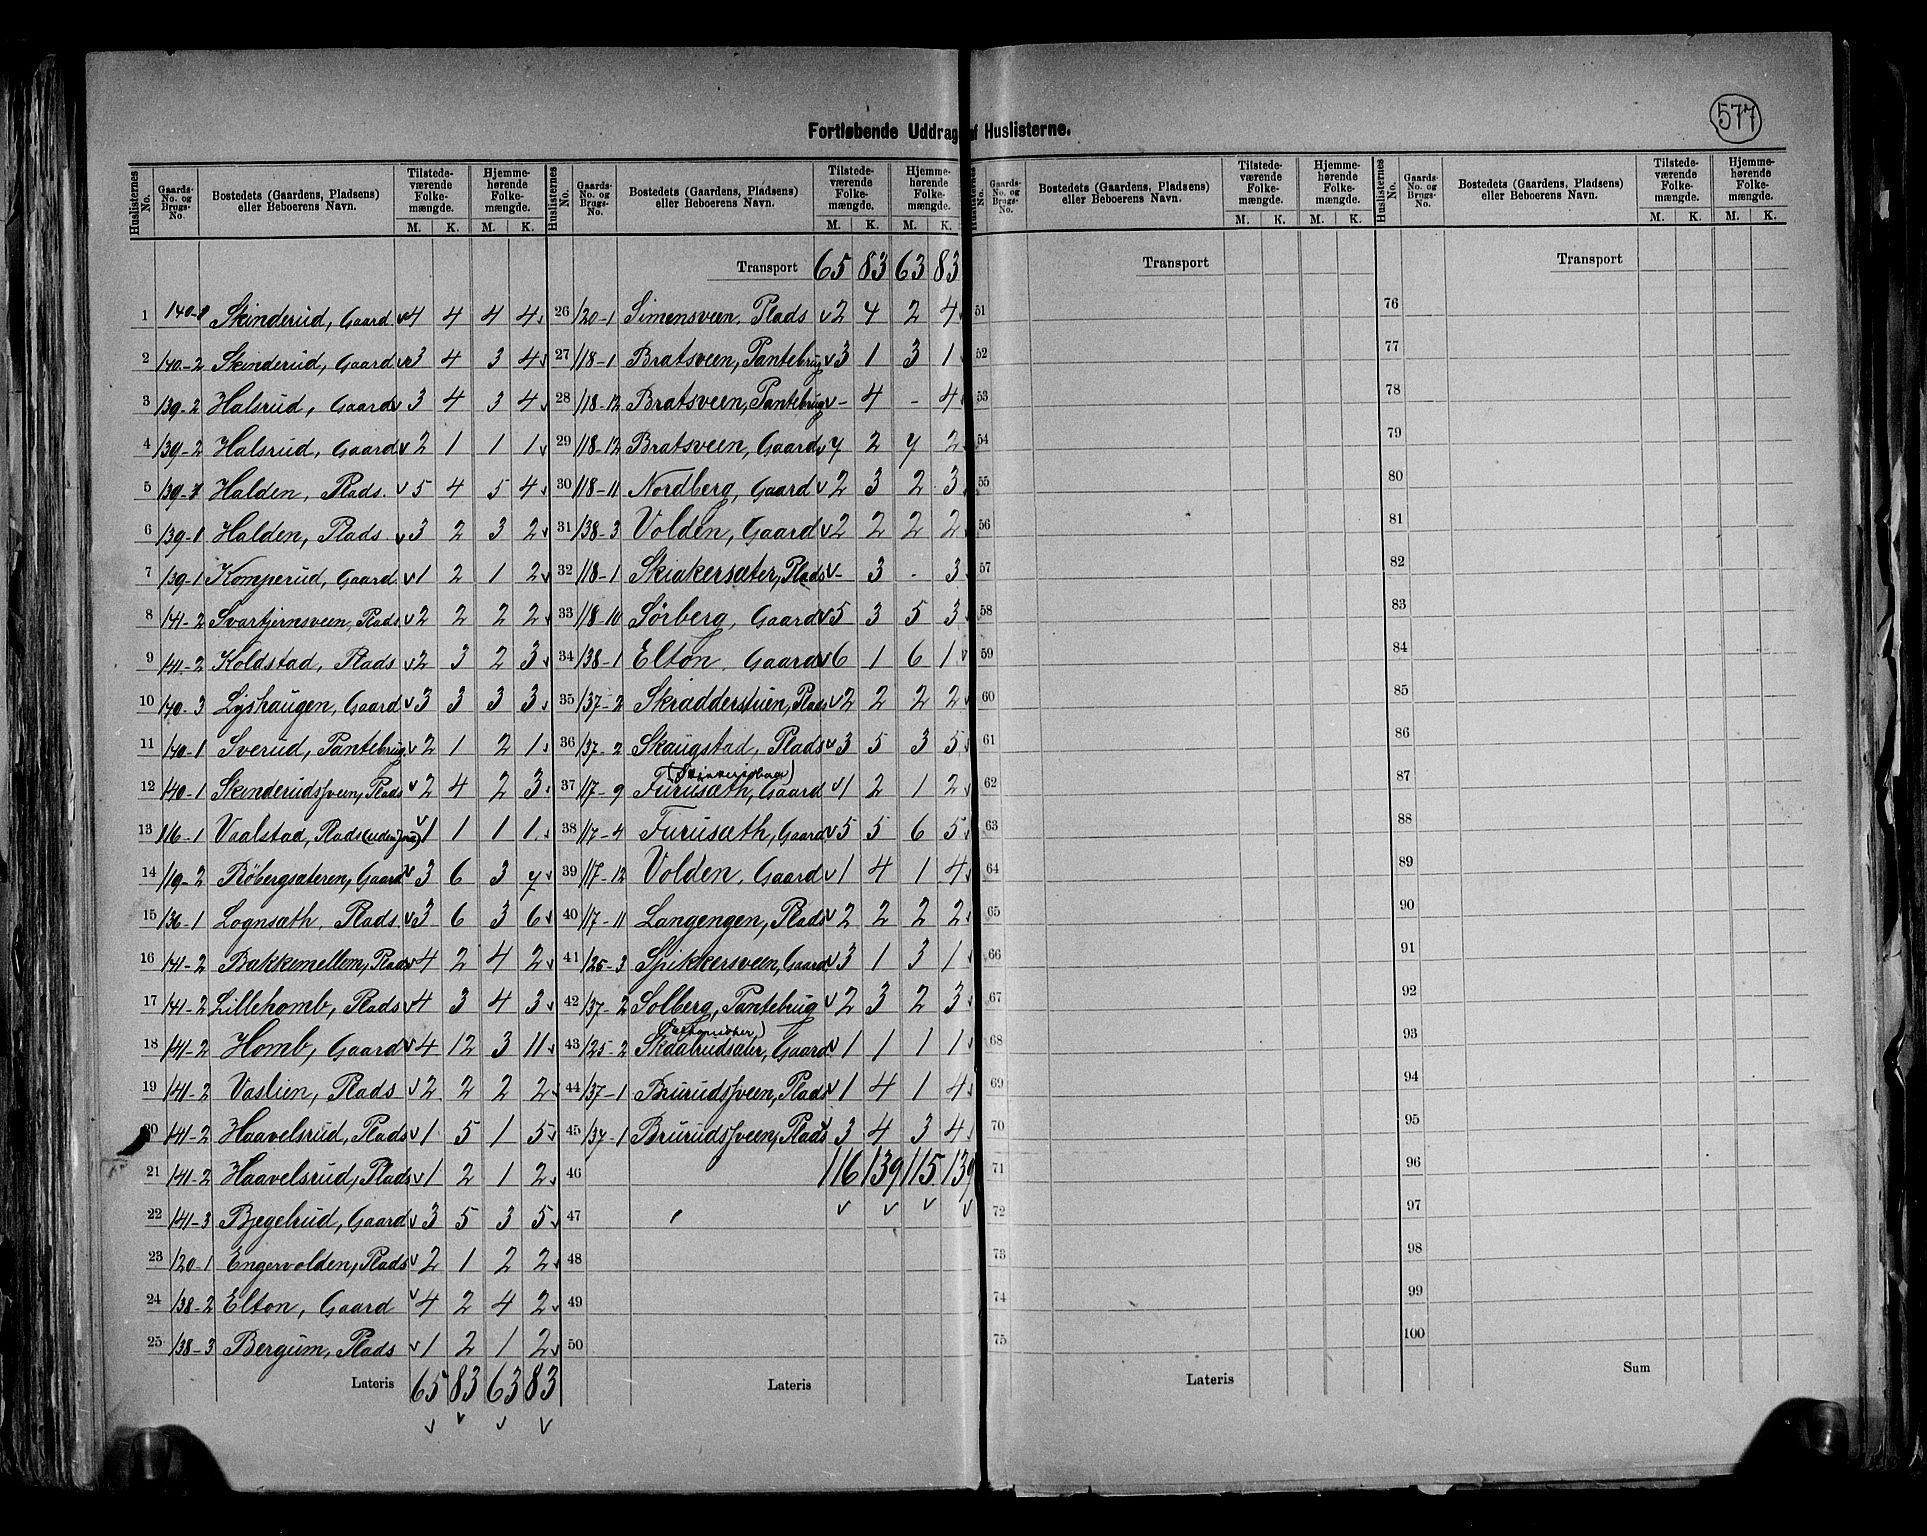 577
Fortløbende Uddrag af Huslisterne.
Huslisternes No. | Gaards-No. og Brugs-No. | Bostedets (Gaardens, Pladsens) eller Beboerens Navn. | Tilstede-værende Folke-mængde. M. K. | Hjemme-hørende Folke-mængde. M. K.
1 140-1 Skinderud, Gaard 4 4 4 4
2 140-2 Skinderud, Gaard 3 4 3 4
3 139-2 Halsrud, Gaard 3 4 3 4
4 139-2 Halsrud, Gaard 2 1 1 1
5 139-1 Halden, Plads 5 4 5 4
6 139-1 Halden, Plads 3 2 3 2
7 139-1 Komperud, Gaard 1 2 1 2
8 141-2 Svartjernsveen, Plads 2 2 2 2
9 141-2 Koldstad, Plads 2 3 2 3
10 140-3 Lyshaugen, Gaard 3 3 3 3
11 140-1 Sverud, Pantebrug 2 1 2 1
12 140-1 Skinderudsveen, Plads 2 4 2 3
13 116-1 Vaalstad, Plads (uden Jord) 1 1 1 1
14 119-2 Røbergsæteren, Gaard 3 6 3 7
15 136-1 Lognsæth, Plads 3 6 3 6
16 141-2 Bakkemellem, Plads 4 2 4 2
17 141-2 Lillehomb, Plads 4 3 4 3
18 141-2 Homb, Gaard 4 12 3 11
19 141-2 Vaslien, Plads 2 2 2 2
20 141-2 Haavelsrud, Plads 1 5 1 5
21 141-2 Haavelsrud, Plads 1 2 1 2
22 141-3 Bjegelrud, Gaard 3 5 3 5
23 120-1 Engervolden, Plads 2 1 2 2
24 138-2 Elton, Gaard 4 2 4 2
25 138-3 Bergum, Plads 1 2 1 2
Lateris 65 83 63 83
Huslisternes No. | Gaards-No. og Brugs-No. | Bostedets (Gaardens, Pladsens) eller Beboerens Navn. | Tilstede-værende Folke-mængde. M. K. | Hjemme-hørende Folke-mængde. M. K.
Transport 65 83 63 83
26 120-1 Simensveen, Plads 2 4 2 4
27 118-1 Bratsveen, Pantebrug 3 1 3 1
28 118-12 Bratsveen, Pantebrug - 4 - 4
29 118-12 Bratsveen, Gaard 7 2 7 2
30 118-11 Nordberg, Gaard 2 3 2 3
31 138-3 Volden, Gaard 2 2 2 2
32 118-1 Skiakersæter, Plads - 3 - 3
33 118-10 Sørberg, Gaard 5 3 5 3
34 138-1 Elton, Gaard 6 1 6 1
35 137-2 Skrædderstuen, Plads 2 2 2 2
36 137-2 Skaugstad, Plads 3 5 3 5
37 117-9 Furusæth, Gaard 1 2 1 2
38 117-4 Furusæth, Gaard 5 5 6 5
39 117-12 Volden, Gaard 1 4 1 4
40 117-11 Langengen, Plads 2 2 2 2
41 125-3 Spikkersveen, Gaard 3 1 3 1
42 137-2 Solberg, Pantebrug 2 3 2 3
43 125-2 Skaalrudsæter, Gaard 1 1 1 1
44 137-1 Brurudsveen, Plads 1 4 1 4
45 137-1 Brurudsveen, Plads 3 4 3 4
46 116 139 115 139
47
48
49
50
Lateris
Huslisternes No. | Gaards-No. og Brugs-No. | Bostedets (Gaardens, Pladsens) eller Beboerens Navn. | Tilstede-værende Folke-mængde. M. K. | Hjemme-hørende Folke-mængde. M. K.
Transport
51
52
53
54
55
56
57
58
59
60
61
62
63
64
65
66
67
68
69
70
71
72
73
74
75
Lateris
Huslisternes No. | Gaards-No. og Brugs-No. | Bostedets (Gaardens, Pladsens) eller Beboerens Navn. | Tilstede-værende Folke-mængde. M. K. | Hjemme-hørende Folke-mængde. M. K.
Transport
76
77
78
79
80
81
82
83
84
85
86
87
88
89
90
91
92
93
94
95
96
97
98
99
100
Sum